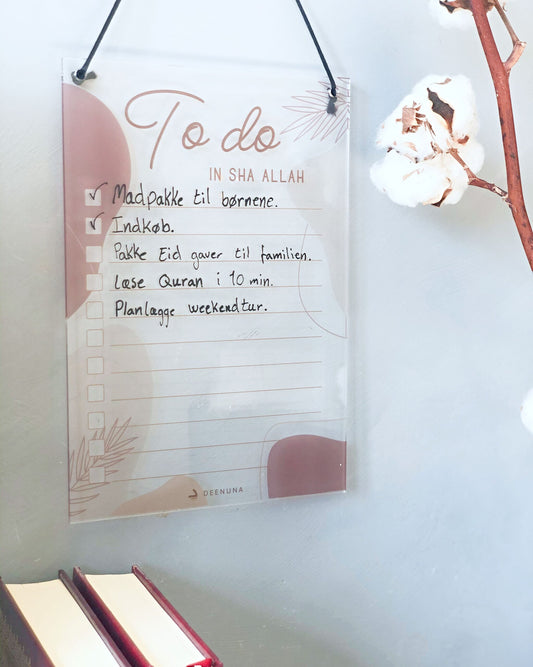 To do
IN SHA ALLAH
Madpakke til børnene.
Indkøb.
Pakke Eid gaver til familien.
Læse Quran i 10 min.
Planlægge weekendtur.
DEENUNA